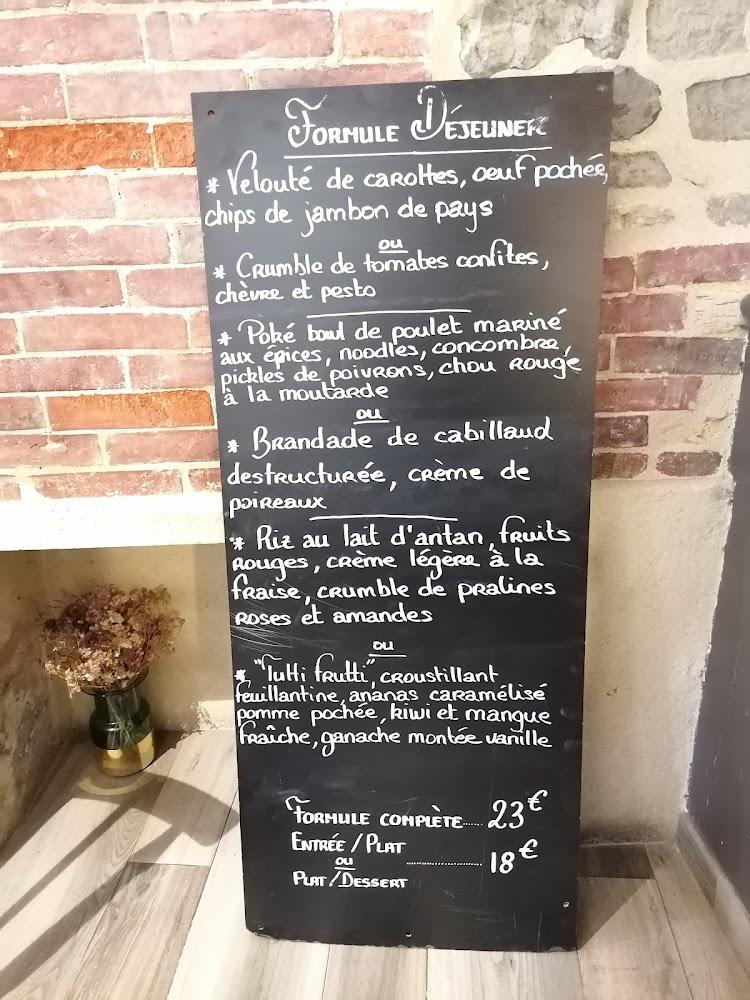 Formule Déjeuner
* Velouté de carottes, oeuf pochée,
chips de jambon de pays
ou
* Crumble de tomates confites,
chèvre et pesto
* Poké bowl de poulet mariné
aux épices, noodles, concombre,
pickles de poivrons, chou rouge
à la moutarde
ou
* Brandade de cabillaud
destructurée, crème de
poireaux
* Riz au lait d'antan, fruits
rouges, crème légère à la
fraise, crumble de pralines
roses et amandes
ou
* "Tutti frutti", croustillant
feuillantine, ananas caramélisé
pomme pochée, kiwi et mangue
fraîche, ganache montée vanille
Formule complète...... 23€
Entrée / Plat
ou .................. 18€
Plat / Dessert